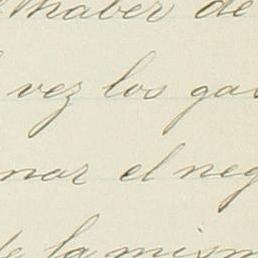 haber de
vez los gas
nar el neg
de la mism